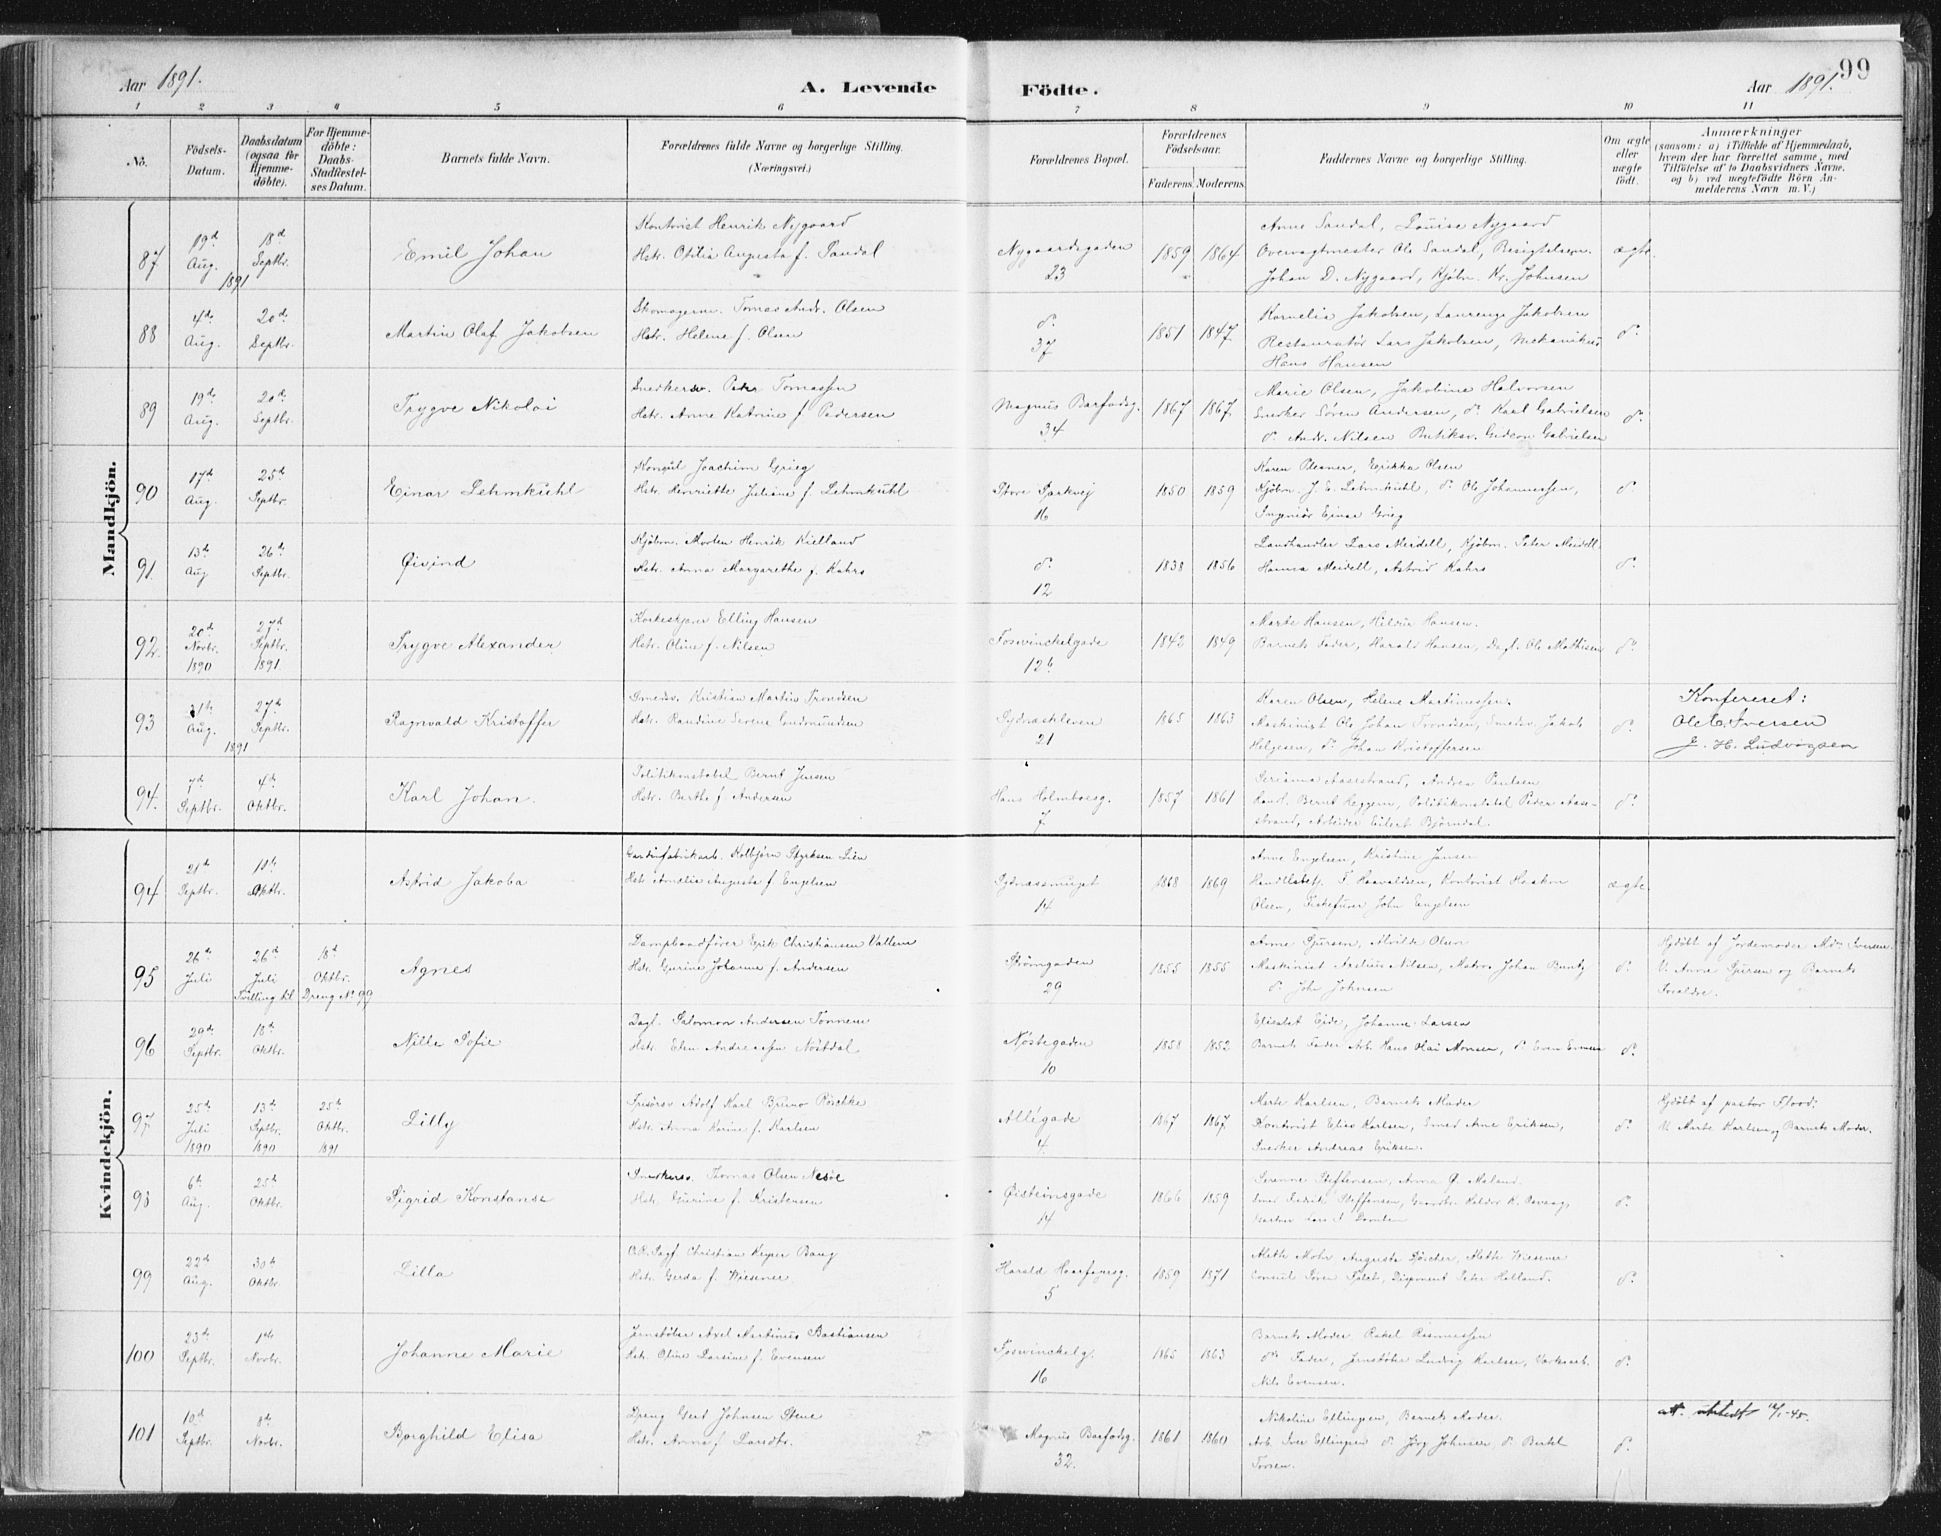 Aar 1891.
A. Levende
Födte.
Aar 1891.
99
1 2 3 4 5 6 7 8 9 10 11
No.
Födsels-Datum.
Daabsdatum (ogsaa for Hjemme-döbte).
For Hjemme-döbte: Daabs-Stadfæstel-ses Datum.
Barnets fulde Navn.
Forældrenes fulde Navne og borgerlige Stilling. (Næringsvei.)
Forældrenes Bopæl.
Forældrenes Födselsaar.
Faderens. Moderens.
Faddernes Navne og borgerlige Stilling.
Om ægte eller uægte födt.
Anmærkninger
(saasom: a) i Tilfælde af Hjemmedaab,
hvem der har forrettet samme, med
Tilföielse af to Daabsvidners Navne.
og b) ved uægtefödte Börn An-
melderens Navn m. V.)
Mandkjön.
87 19d Aug. 1891 18d Septbr. Emil Johan
Kontorist Henrik Nygaard
Hstr. Othilia Augusta f. Sandal
Nygaardsgaden 23 1859 1864
Anne Sandal, Louise Nygaard
Overvagtmester Ole Sandal, Besigtelsesm.
Johan D. Nygaard, Kjöbm. Kr. Johnsen
ægte.
88 4de Aug. 20de Septbr. Martin Olaf Jakobsen
Skomagerm. Tomas Andr. Olsen
Hstr. Helene f. Olsen
do 37 1851 1847
Kornelia Jakobsen, Laurenze Jakobsen
Restauratör Lars Jakobsen, Mekanikus
Hans Hansen
do
89 19de Aug. 20de Septbr. Trygve Nikolai
Snedkersv. Peder Tomassen
Hstr. Anne Katrine f. Pedersen
Magnus Barfodsg. 34 1867 1867
Marie Olsen, Jakobine Halvorsen
Snedker Sören Andersen, do Karl Gabrielsen
do Andr. Nilsen Butiksv. Gideon Gabrielsen
do
90 17de Aug. 25de Septbr. Einar Lehmkuhl
Konsul Joachim Grieg
Hstr. Henriette Juliane f. Lehmkuhl
Store Parkvej 16 1850 1859
Karen Plesner, Erikka Olsen
Kjöbm. J. E. Lehmkuhl, do Ole Johannessen,
Ingeniör Einar Grieg
do
91. 13de Aug. 26de Septbr. Øivind
Kjöbm. Morten Henrik Kielland
Hstr. Anna Margarethe f. Kahrs
do 12 1838 1856
Landhandler Lars Meidell, Kjöbm. Peter Meidell,
Hanna Meidell, Astrid Kahrs
do
92. 20de Novbr. 1890 27de Septbr. 1891. Trygve Alexander
Korkeskjærer Elling Hansen
Hstr. Oline f. Nilsen
Foswinckelgade 12b 1842 1849
Marte Hansen, Hilda Hansen.
Barnets Fader, Harald Hansen, Dagl. Ole Mathisen
do
93 31te Aug. 1891 27de Septbr. Ragnvald Kristoffer
Smedsv. Kristian Martin Trondsen
Hstr. Randine Serene Gudmundsen
Sydnæskleven 21 1865 1863
Karen Olsen, Helene Martinussen.
Maskinist Ole Johan Trondsen, Smedsv. Jakob
Helgesen, do Johan Kristoffersen
do
Konfereret:
Ole E. Iversen
J. H. Ludvigsen
94. 7de Septbr. 4de Oktbr. Karl Johan.
Politikonstabel Bernt Jensen
Hstr. Berthe f. Andersen
Hans Holmboesg. 7 1857 1861
Serianna Aasestrand, Andrea Paulsen
Hand. Bernt Heggem, Politikonstabel Peder Aase-
strand, Arbeider Eilert Björndal.
do
Kvindekjön.
94 21de Septbr. 10de Oktbr. Astrid Jakoba
Gardinfabrikarb. Kolbjörn Styrksen Lien
Hstr. Amelia Augusta f. Engelsen
Sydnæssmuget 14 1868 1869
Anne Engelsen, Kristine Jansen
Handllsbetj. T. Haavaldsen, Kontorist Haakon
Olsen, Fiskefürer John Engelsen
ægte.
95 26de Juli 26de Juli 18de Oktbr. Agnes
Tvilling til Dreng No 99
Dampbaadförer Erik Christiansen Vatlem
Hstr. Gurine Johanne f. Andersen
Strömgaden 29 1855 1855
Anne Sjursen, Alvilde Olsen
Maskinist Nilsen, Matros Johan Buntz
do Johs Johnsen
do
Hjdöbt af Jordemoder Mdm Iversen.
V: Anne Sjursen og Barnets
Foreldre.
96 29de Septbr. 18de Oktbr. Nille Sofie
Dagl. Salomon Andersen Tonnene
Hstr. Elen Andreassen Nöstdal
Nöstegaden 10 1858 1852
Elisabet Eide, Johanne Larsen
Barnets Fader Arb. Hans Olai Monsen, do Even Evensen
do
97 25de Juli 1890 13de Septbr. 1890 25de Oktbr. 1891 Lilly
Frisörsv Adolf Karl Bruno Röschke
Hstr. Anna Karine f. Karlsen
Allégade 4 1867 1867
Marte Karlsen, Barnets Moder
Kontorist Elias Karlsen, Smed Arne Eriksen,
Snedker Andreas Eriksen.
do
Hjdöbt af pastor Flood:
V. Marte Karlsen og Barnets Moder.
98 6te Aug. 25de Oktbr. Sigrid Konstanse
Snedkersv. Thomas Olsen Nesöe
Hstr. Gurine f. Kristensen
Øisteinsgade 14 1866 1859
Serianne Steffensen, Anna Ø. Meland
Steffensen,
do
99 22de Aug. 30te Oktbr. Lilla
O.R. Sagf Christian Keyser Bang
Hstr. Gerda f. Wiesener
Harald Haarfagersg. 5 1859 1871
Aleth Mohr Augusta Döscher, Aleth Wiesener
Consul Sören Falck, Disponent Peter Holland.
do
100 23de Septbr. 1ste Novbr. Johanne Marie
Jernstöber Axel Martinus Bastiansen
Hstr. Oline Larsine f. Evensen
Foswinckelg. 16 1865 1863
Barnets Moder Rakel Rasmussen
do Fader, Jernstöber Ludvig Karlsen, Værkseb.
Nils Evensen.
do
101 10de Septbr. 8de Novbr. Borghild Elisa
Dreng Gert Johnsen Stene
Hstr. Anna f. Larsdtr.
Magnus Barfodsg. 32. 1861 1860
Nikoline Ellingsen, Barnets Moder.
Arb. Iver Ellingsen do Jörg Johnsen, do Bertel
Torsen.
do
att. utstedt 12/1-45.